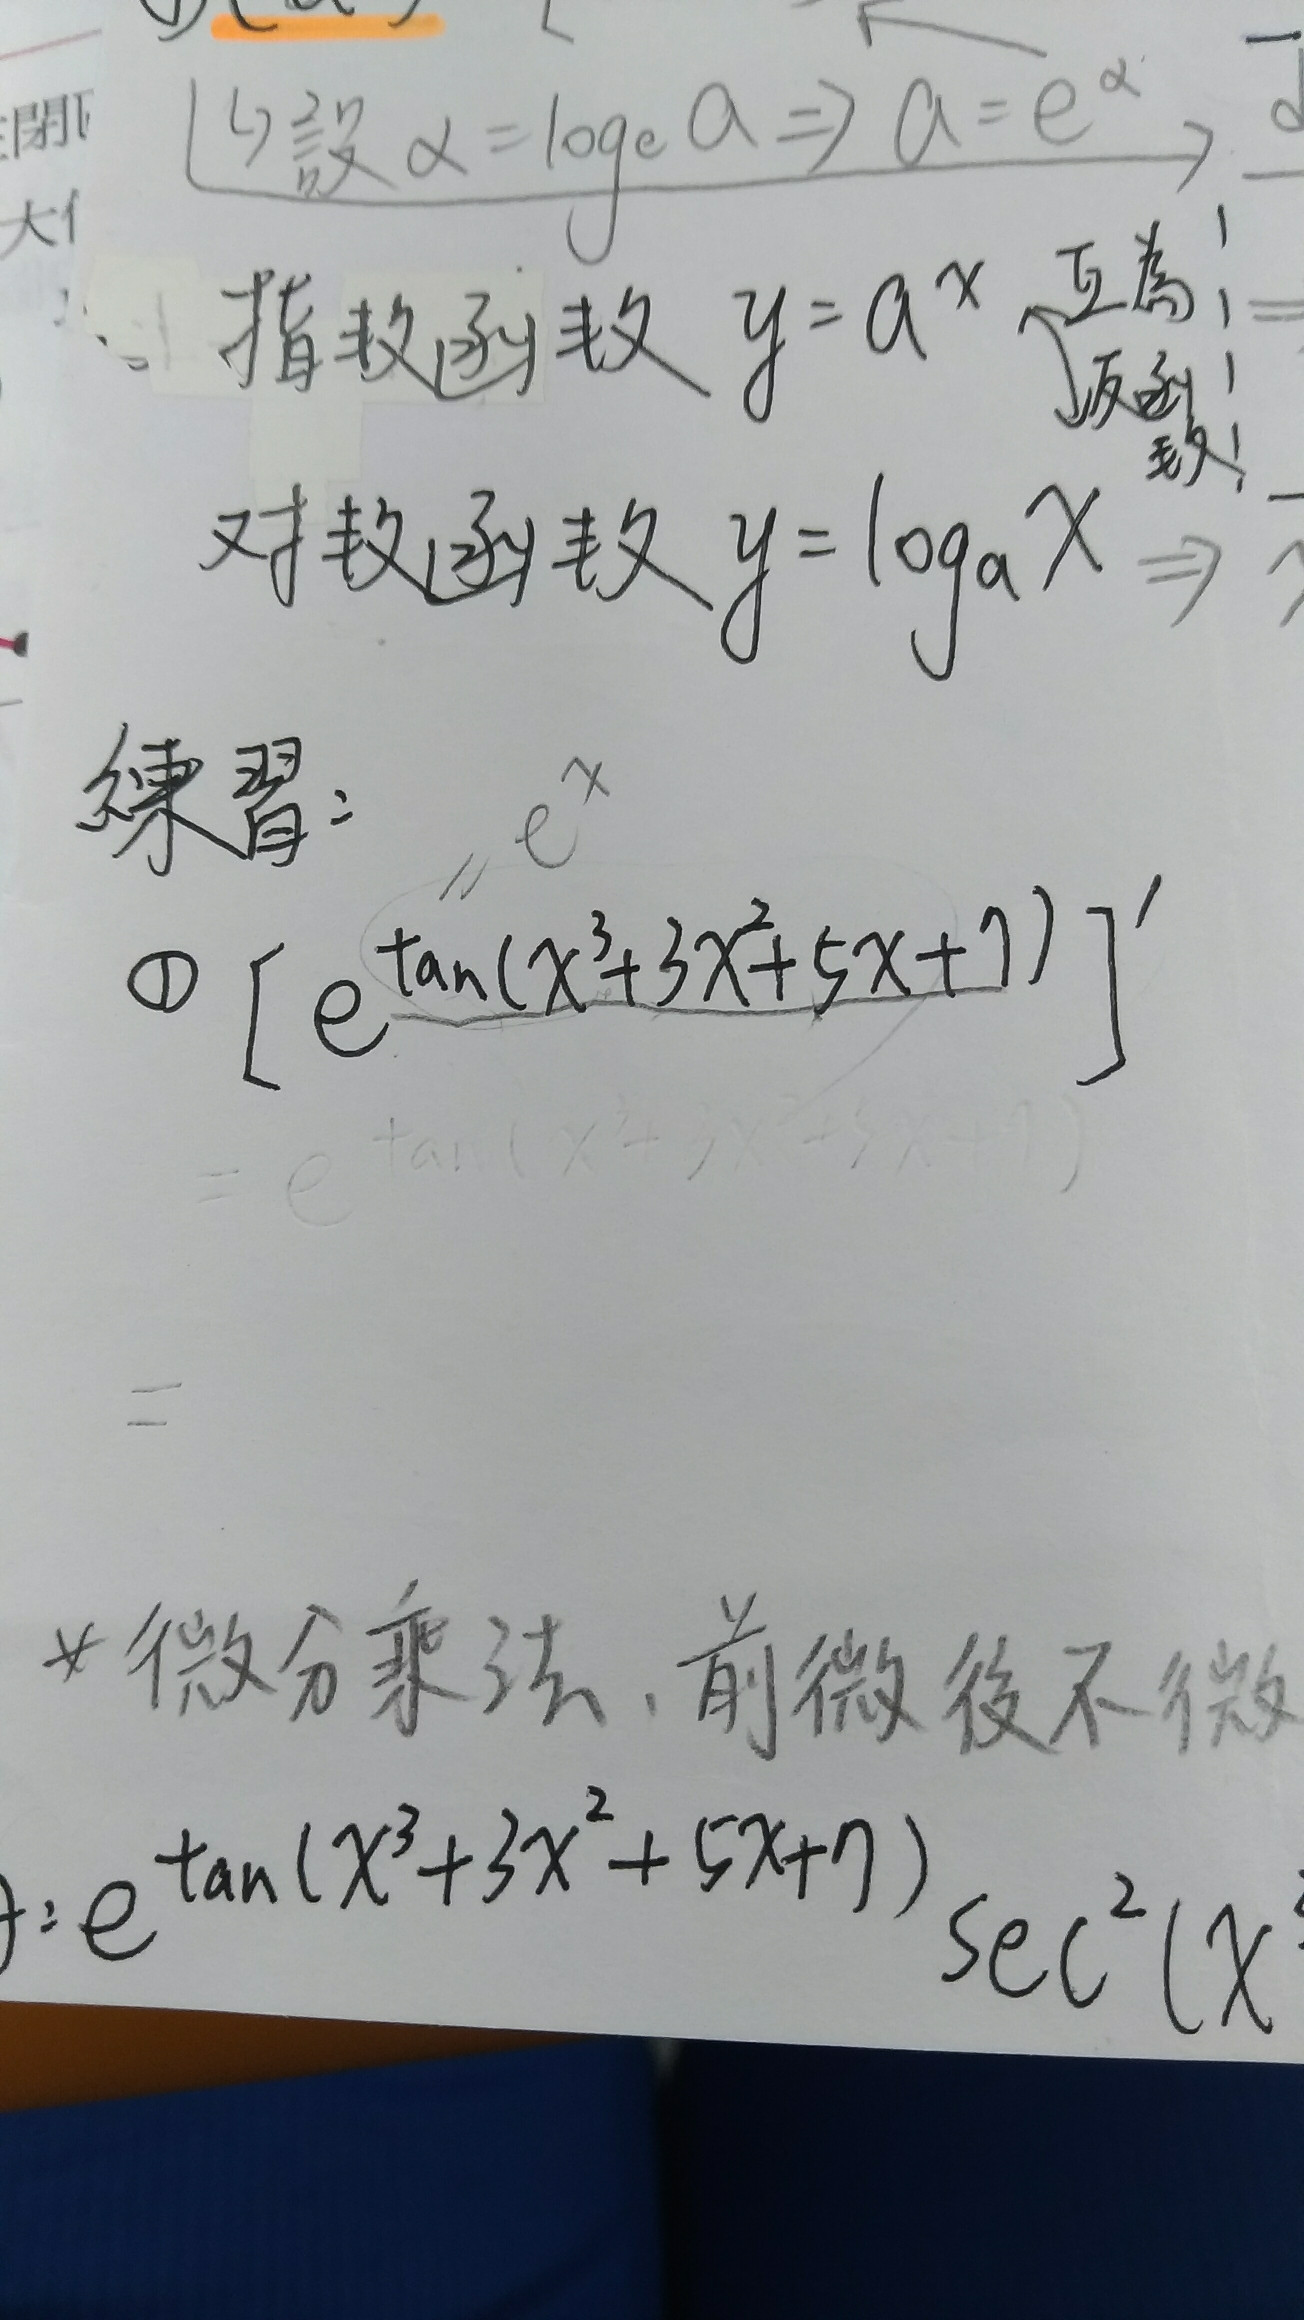 ↳設 α = logₑ a ⇒ a = e^α
指数函数 y = a^x 互為
反函
数
对数函数 y = logₐ x ⇒
練習:
e^x
① [e^tan(x³+3x²+5x+7)]'
= e^tan(x³+3x²+5x+7)
=
* 微分乘法、前微後不微
: e^tan(x³+3x²+5x+7) sec²(x³